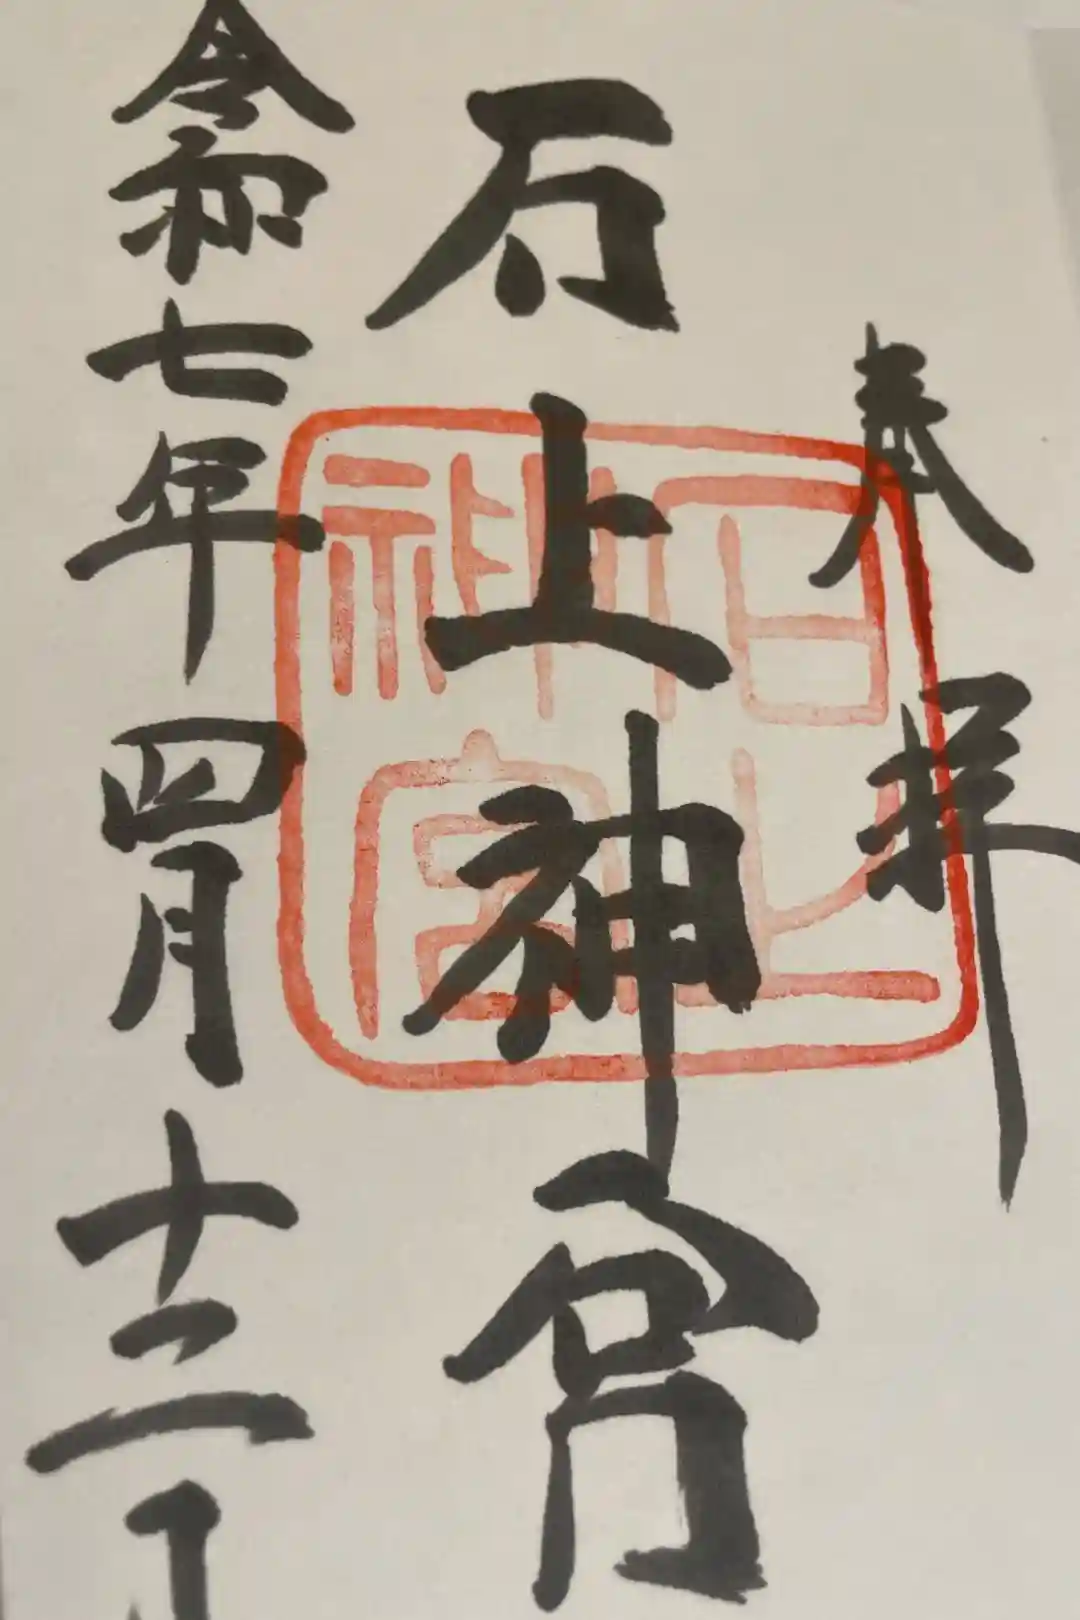 奉拝
石上神宮
令和七年四月十二日
石上神宮